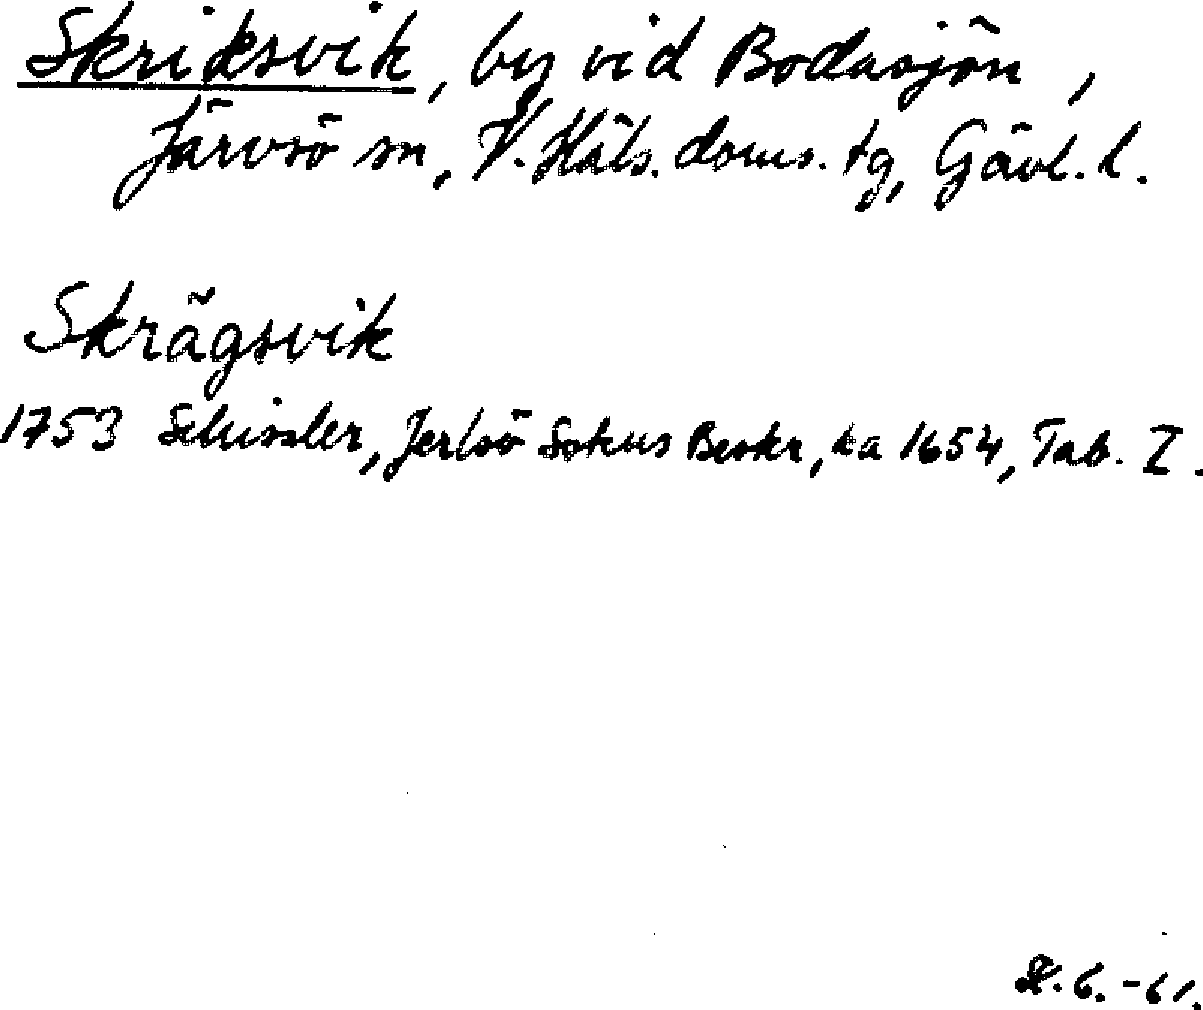 Skriksvik, by vid Bodasjön,
Järvsö sn, V. Häls. doms. tg, Gävl. l.
Skrägsvik
1753 Schissler, Jerlsö Sokns Beskr, ka 1654, Tab. I.
6. -61.